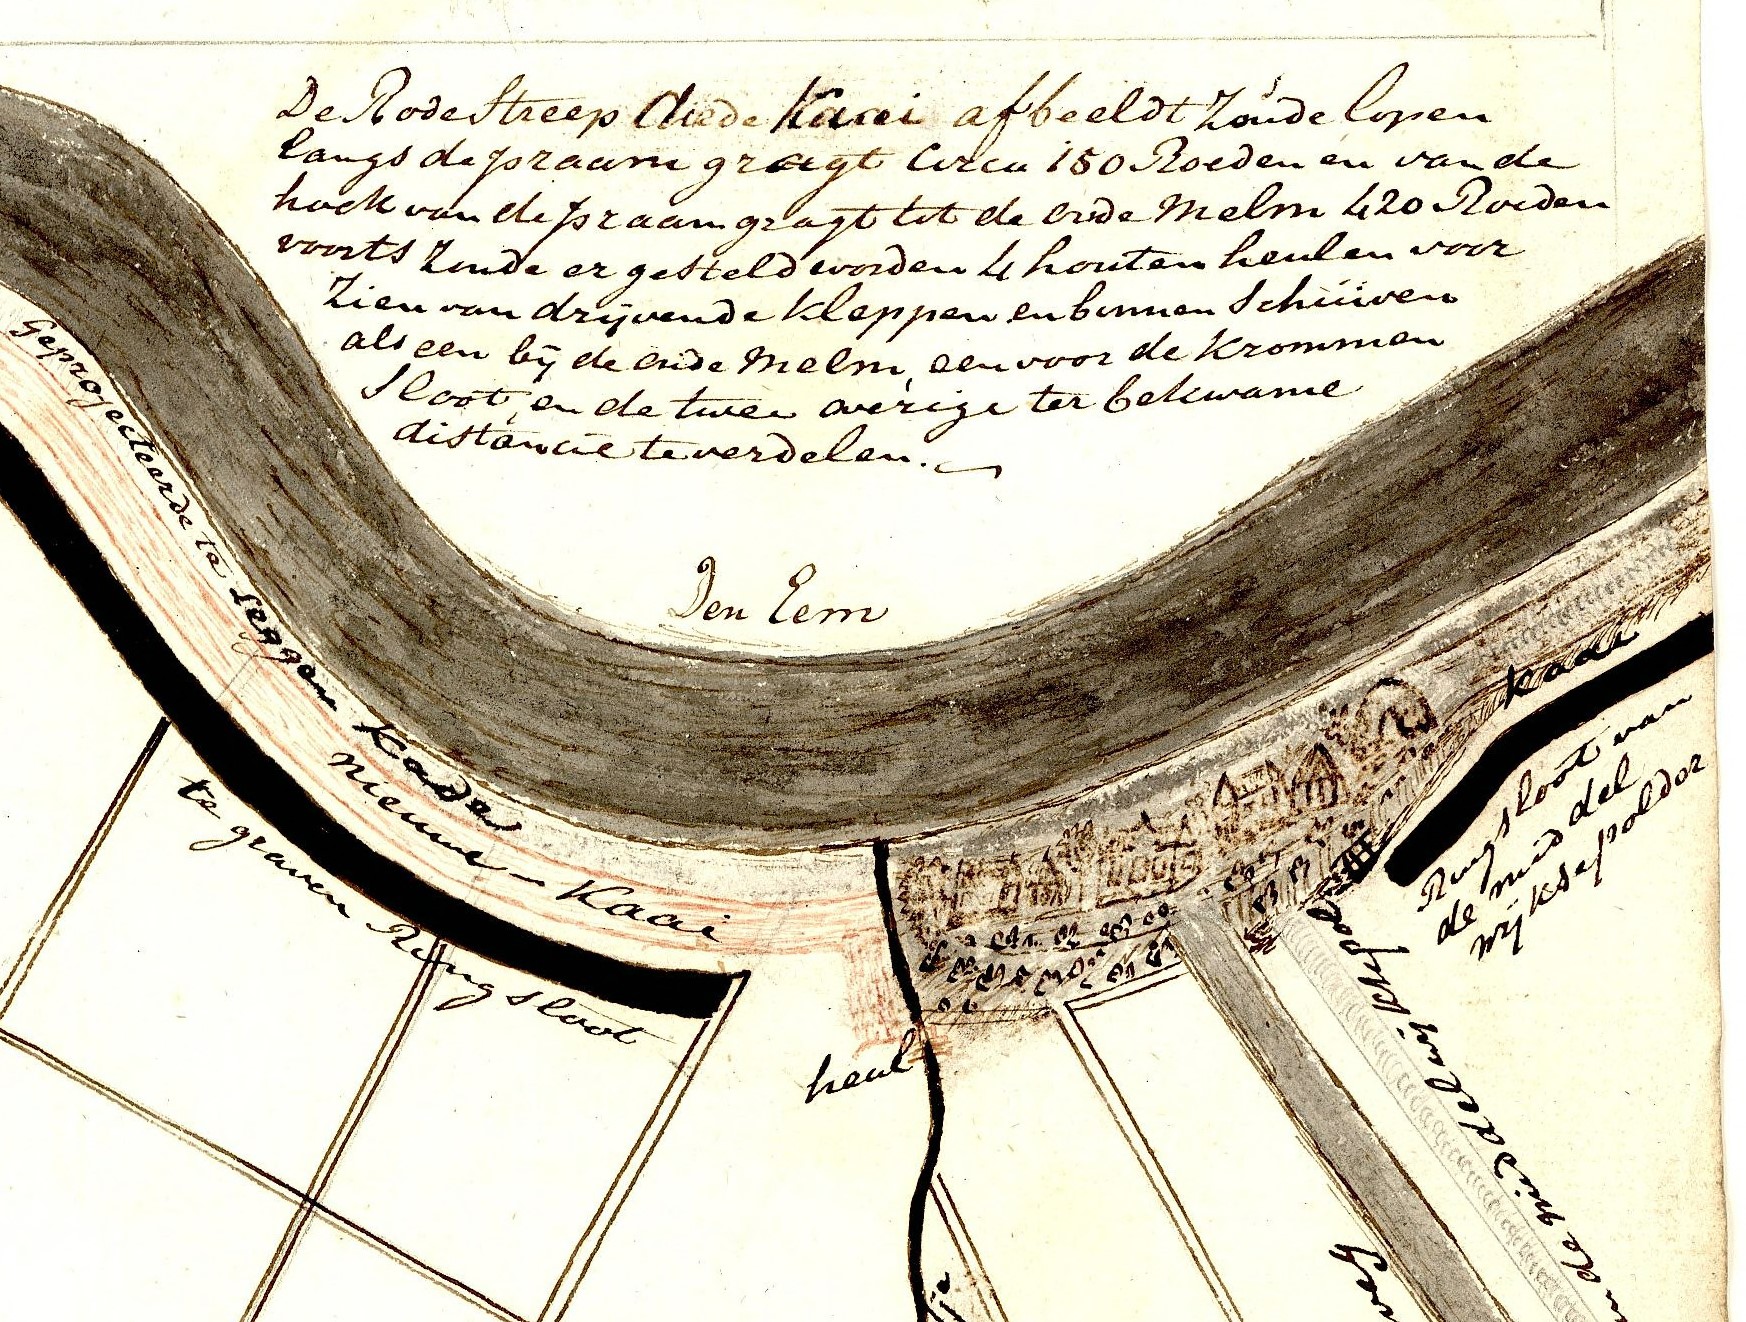 De Rode Streep die de Kaai afbeeldt zoude lopen
langs de praam gragt Circa 150 Roeden en van de
hoek van de praam gragt tot de oude Melm 420 Roeden
voorts zoude er gesteld worden 4 houten heulen voor
zien van drijvende kleppen en binnen Schuiven
als een bij de oude Melm, een voor de krommen
Sloot, en de twee overige ter bekwame
distancie te verdelen.
Den Eem
Geprojecteerde te leggen Kaden
nieuwe Kaai
te graven Ringsloot
heul
Kade
Ringsloot van
de nuid del
wijkse polder
nuidelwijksepol
weg